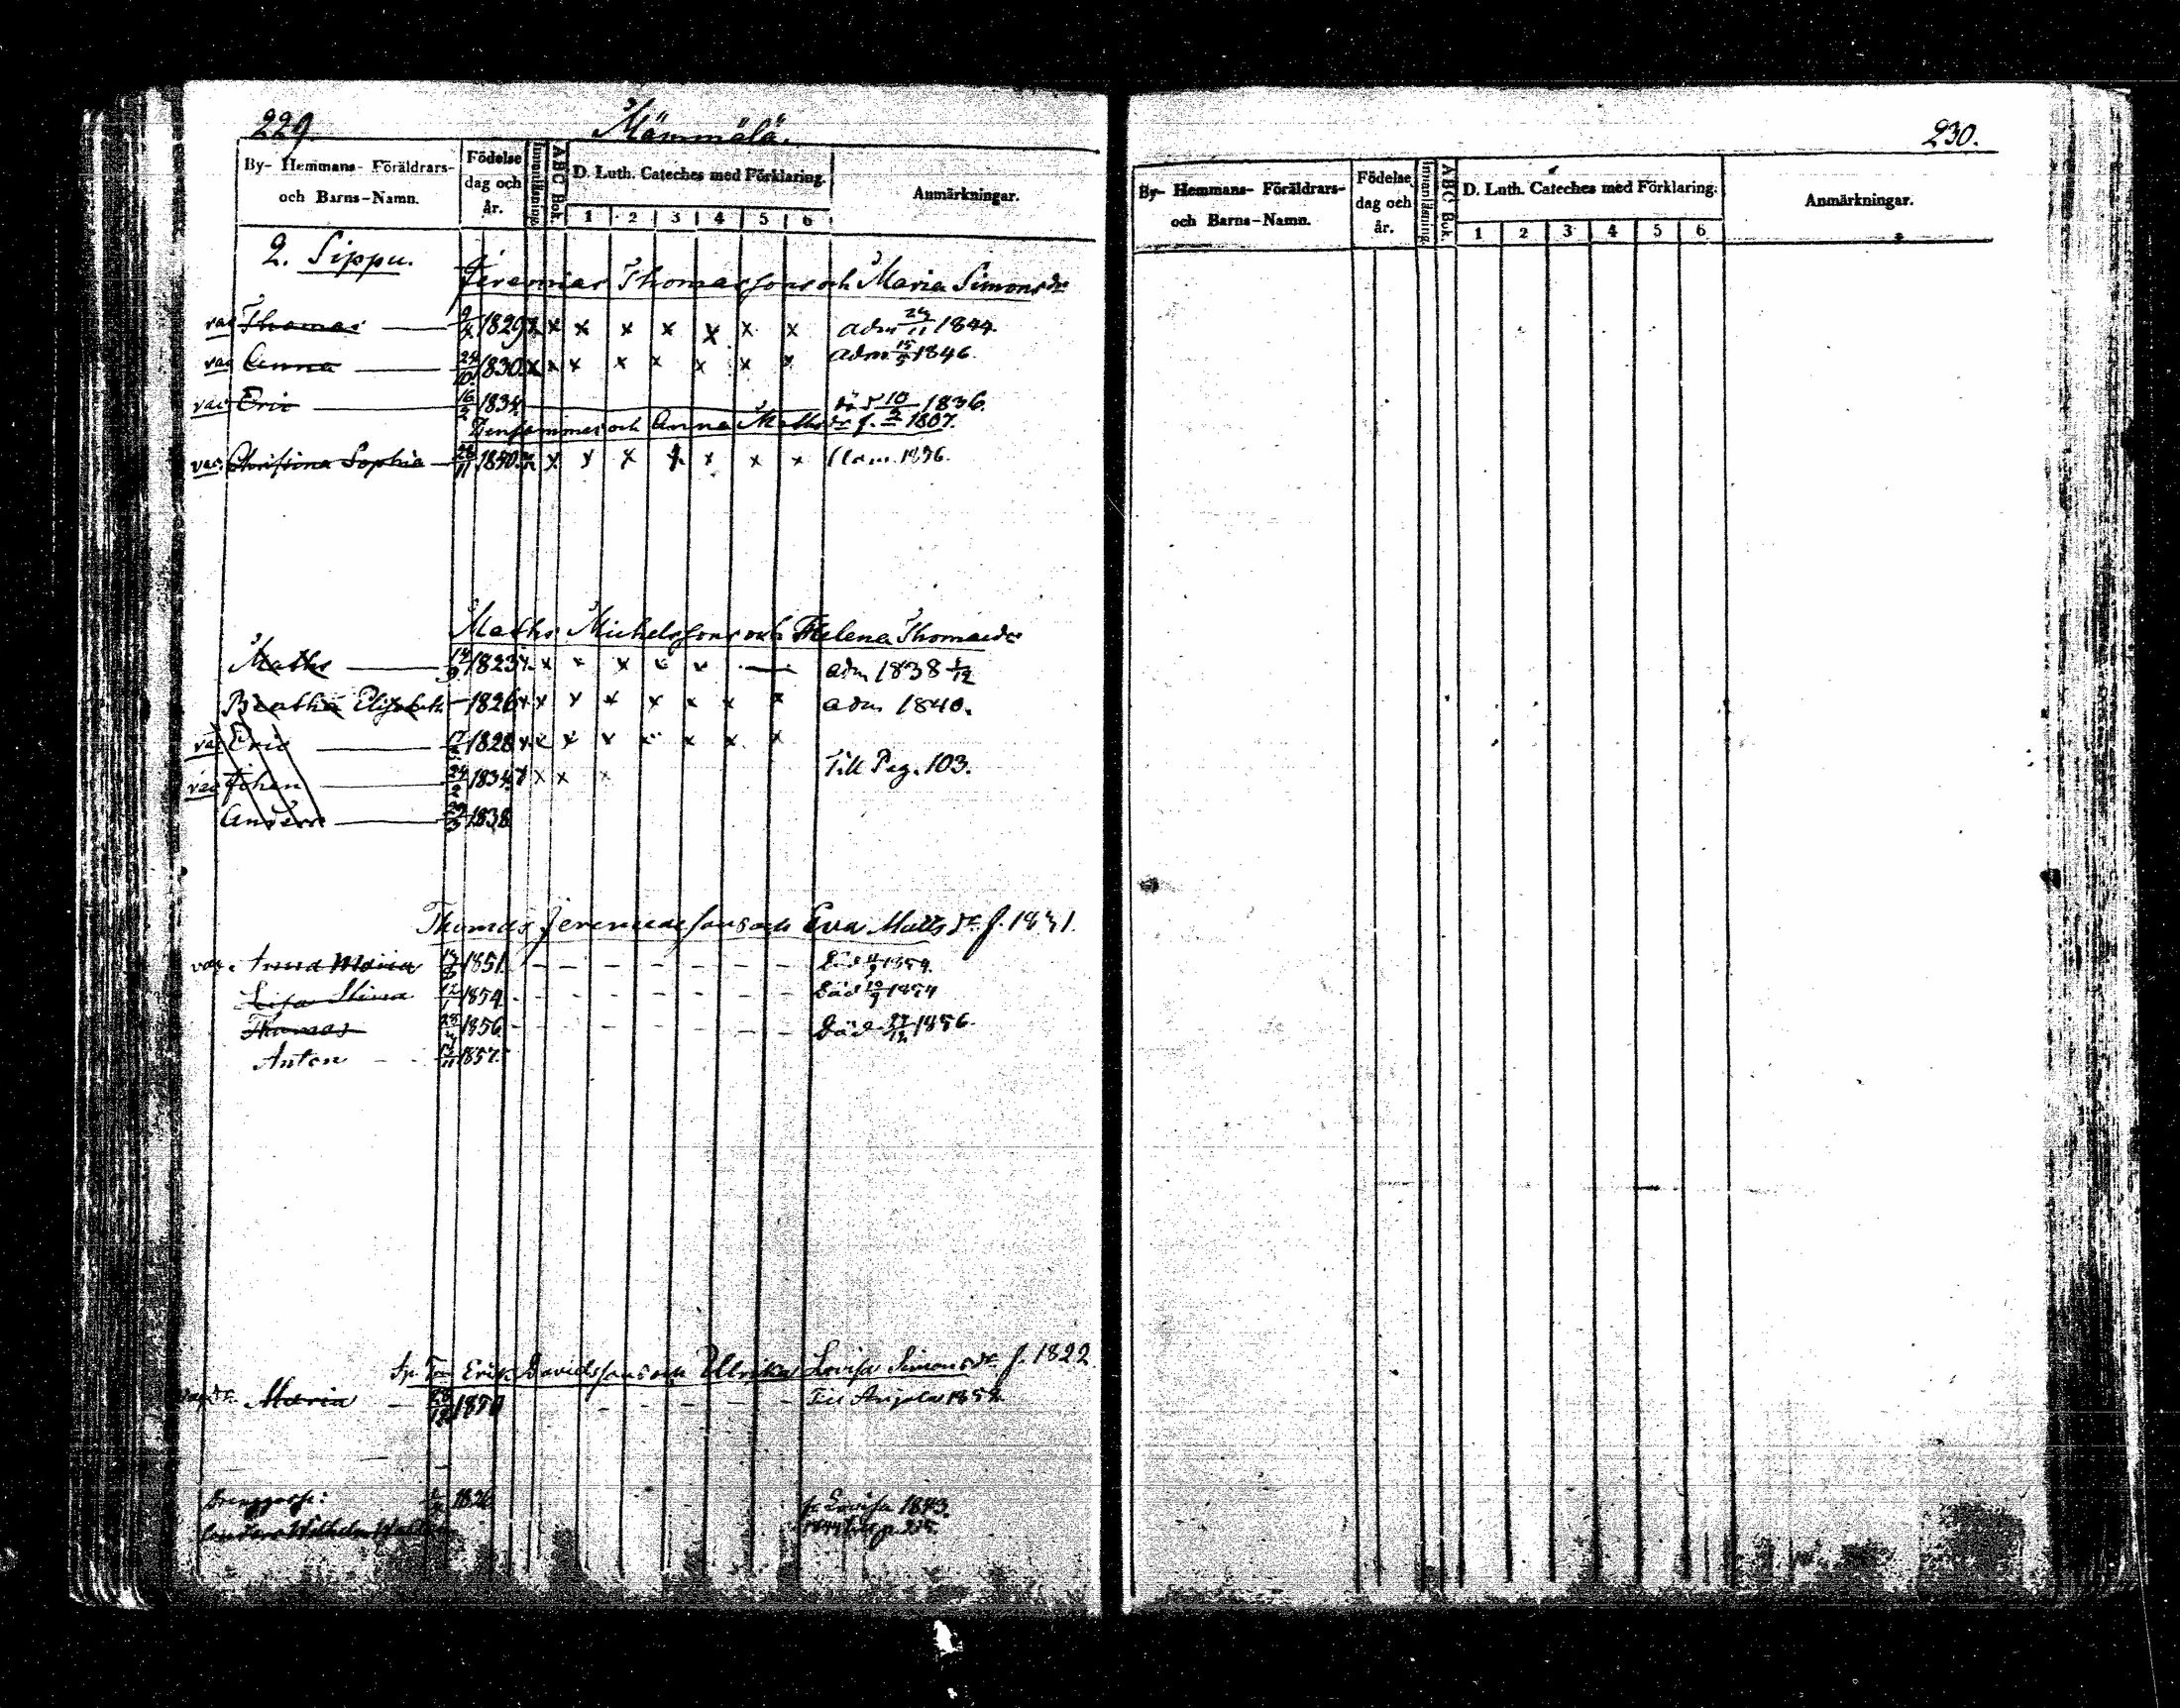 229
Mämmälä.
By- Hemmans- Föräldrars- och Barns-Namn.
Födelse dag och år.
Innanläsning.
ABC Bok.
D. Luth. Cateches med Förklaring.
1 2 3 4 5 6
Anmärkningar.
2. Sippu.
Jeremias Thomassons och Maria Simonsdr
vac Thomas 1829 x x x x x x x x adm 24/11 1844.
vac Anna 24/10 1830. x x x x x x x x adm 15/5 1846.
vac Eric 16/2 1834. död 10/ 1836.
Densammes och Anna Mattsdr f. 1807.
vac. Christina Sophia 28/11 1840. x x x x x x x x 1856.
Maths Michelssons och Helena Thomasdr
Maths 1823 x x x x x x adm 1838
Beatha Elisabeth 1826 x x x x x x x x adm 1840.
vac Eric 1828 x x x x x x x x
vac Johan 24/ 1834. x x x Till Pag. 103.
Anders 1838
Thomas Jeremiassons och Eva Mattsdr f. 1831.
vac. Anna Maria 1851. Död 1854.
Lisa Stina 12/1 1854 Död 1854
Thomas 28/ 1856 Död 27/12 1856.
Anton 1857.
Erik Davidssons och Ulrika Lovisa Simonsdr f. 1822.
Maria 28/12 1850 Till Anjala 1852.
1826 fr Lovisa 1843.
Anders Wilhelm 1844 till p. 
230.
By- Hemmans- Föräldrars- och Barns-Namn.
Födelse dag och år.
Innanläsning.
ABC Bok.
D. Luth. Cateches med Förklaring.
1 2 3 4 5 6
Anmärkningar.